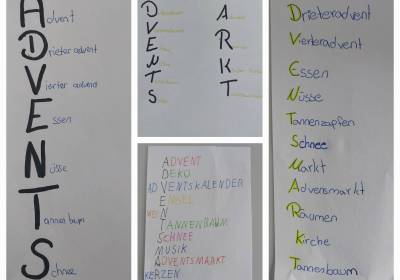 Advent
Drieter advent
Vierter advend
Essen
Nüsse
Tannen baum
Schnee
D
V
E
N
T
S
A
R
K
T
ADVENT
DEKO
ADVENTSKALENDER
ENGEL
TANNENBAUM
SCHNEE
MUSIK
ADVENTSMARKT
KERZEN
Drieteradvent
Vierteradvent
Essen
Nüsse
Tannenzapfen
Schnee
Markt
Advensmarkt
Räumen
Kirche
Tannenbaum